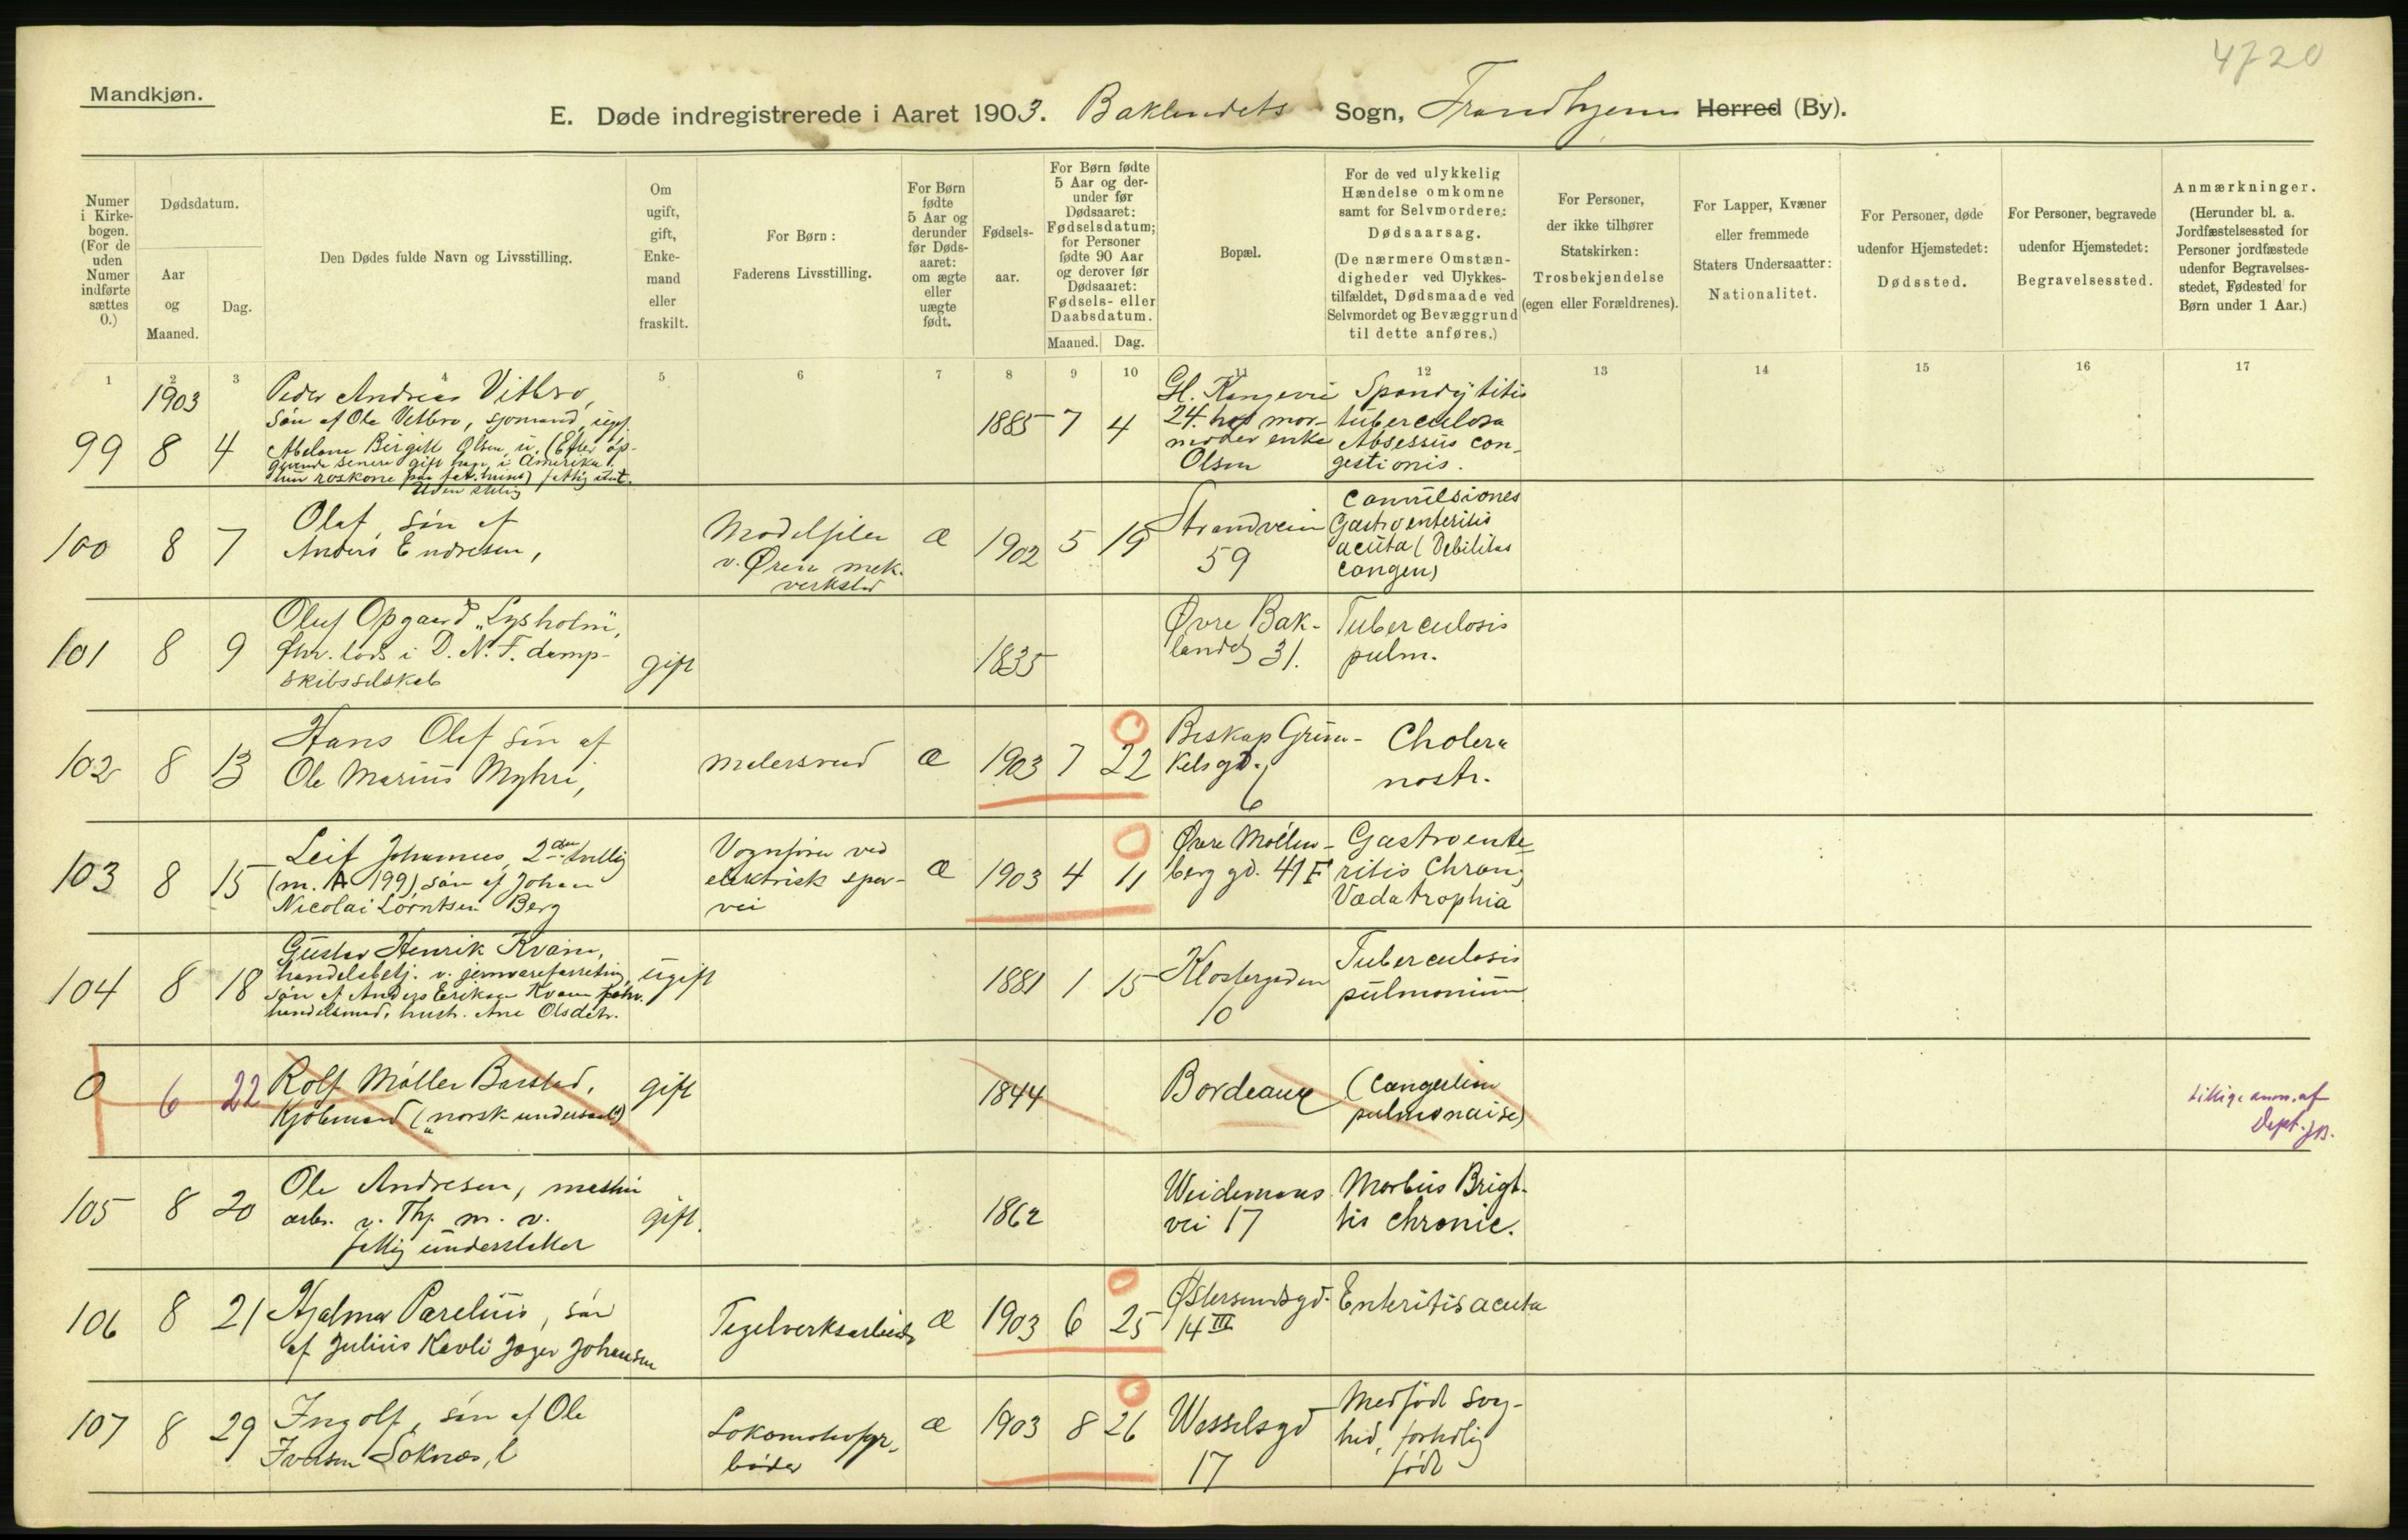 4720
Mandkjøn.
E. Døde indregistrerede i Aaret 1903. Baklandets Sogn, Trondhjems Herred (By).
Numer i Kirkebogen. (For de uden Numer indførte sættes 0.)
Dødsdatum.
Aar og Maaned.
Dag.
Den Dødes fulde Navn og Livsstilling.
Om ugift, gift, Enkemand eller fraskilt.
For Børn:
Faderens Livsstilling.
For Børn fødte 5 Aar og derunder før Dødsaaret: om ægte eller uægte født.
Fødselsaar.
For Børn fødte 5 Aar og derunder før Dødsaaret: Fødselsdatum; for Personer fødte 90 Aar og derover før Dødsaaret: Fødsels- eller Daabsdatum.
Maaned. Dag.
Bopæl.
For de ved ulykkelig Hændelse omkomne samt for Selvmordere: Dødsaarsag.
(De nærmere Omstændigheder ved Ulykkestilfældet, Dødsmaade ved Selvmordet og Bevæggrund til dette anføres.)
For Personer, der ikke tilhører Statskirken: Trosbekjendelse (egen eller Forældrenes).
For Lapper, Kvæner eller fremmede Staters Undersaatter: Nationalitet.
For Personer, døde udenfor Hjemstedet: Dødssted.
For Personer, begravede udenfor Hjemstedet: Begravelsessted.
Anmærkninger.
(Herunder bl. a. Jordfæstelsessted for Personer jordfæstede udenfor Begravelsesstedet, Fødested for Børn under 1 Aar.)
1 2 3 4 5 6 7 8 9 10 11 12 13 14 15 16 17
1903
99 8 4
Peder Andreas Vitbro,
søn af Ole Vitbro, sjømand, ugf.
Abelone Birgitte Olsen, u. (Efter op-
givende senere gift i Amerika
fattig underst.
1885 7 4
Gl. Kongevei
24. hos mor-
moder enke
Olsen
Spondylitis
tuberculosa
Absessus con-
gestionis.
100 8 7
Olaf, søn af
Anders Endresen,
Modelfiler
v. Øren mek.
verksted
æ 1902 5 19
Strandveien
59
Convulsiones
Gastroenteritis
acuta (Debilitas
congen)
101 8 9
Oluf Opgaard "Lysholm",
fhv. lods i D. N. F. damp-
skibsselskab
gift
1835
Øvre Bak-
landet 31.
Tuberculosis
pulm.
102 8 13
Hans Olaf søn af
Ole Marius Myhre,
malersvend
æ 1903 7 22
Biskop Grim-
kelsgd.
6
Cholera
nostr.
103 8 15
Leif Johannes, 2den tvillig
(m. A 199), søn af Johan
Nicolai Lorntsen Berg
Vognfører ved
elektrisk spor-
vei
æ 1903 4 11
Øvre Møllen-
berg gd. 41 F
Gastroente-
ritis Chron;
Pædatrophia
104 8 18
Gustav Henrik Kvam,
handelsbetj. v. jernvareforretning,
søn af Anders Eriksen Kvam fohv.
handelsmd. hustr. Ane Olsdtr.
ugift
1881 1 15
Klostergaden
10
Tuberculosis
pulmonium
0 6 22
Rolf Møller Barstad,
Kjøbmand (norsk undersaat)
gift
1844
Bordeaux
(Congestion
pulmonaise)
tillige anm. af
Dept. JB.
105 8 20
Ole Andresen, maskin
arb. v. Thj. m. v.
fattig understøttet
gift.
1862
Weidemans
vei 17
Morbus Brigt-
tis chronic.
106 8 21
Hjalmar Parelius, søn
af Julius Kavli Jager Johansen
Tegelverksarbeider
æ 1903 6 25
Østersundsgd.
14 III
Enteritis acuta
107 8 29
Ingolf, søn af Ole
Iversen Soknæs,
Lokomotivfyr-
bøder
æ 1903 8 26
Wesselsgd
17
Medfødt svag-
hed, fortidlig
født